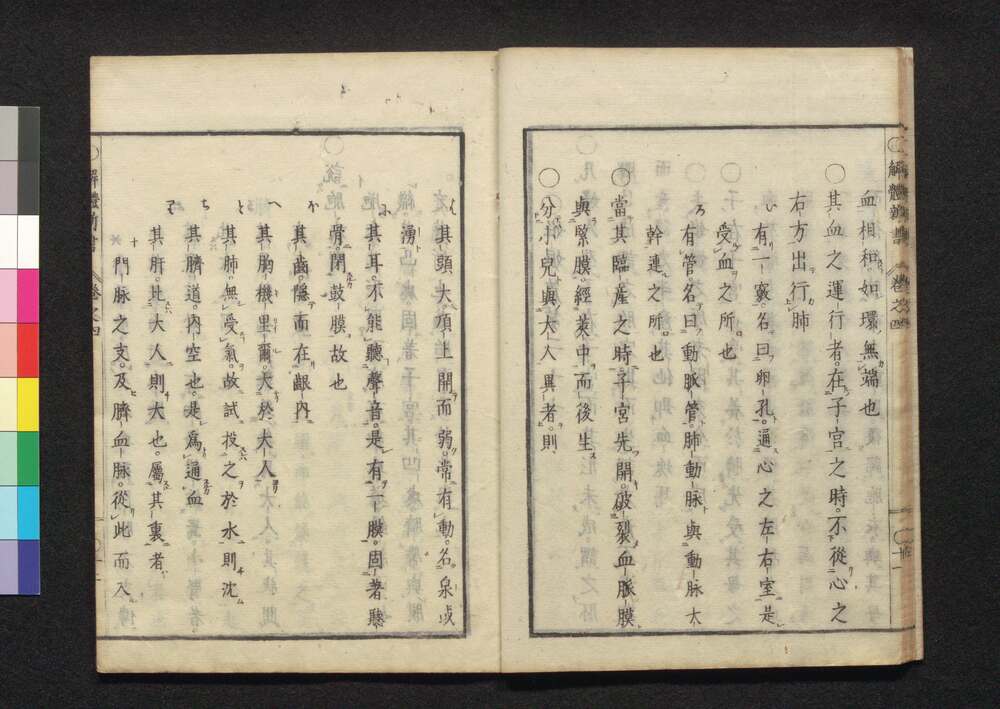 解體新書 卷之四
血相和。如環無端也
〇其血之運行者。在子宮之時。不從心之
右方出行肺
い 有一竅。名曰卵孔。通心之左右室。是
受血之所也
ろ 有管。名曰動脈管。肺動脈與動脈大
幹連之所也
〇當其臨産之時。子宮先開。破裂血脈膜
與緊膜。經莢中。而後生
〇分小兒與大人異者。則
は 其頭大。頂上開而弱。常有動。名泉或
湧
に 其耳。不能聽聲音。是有一膜。固著聽
骨。閉鼓膜故也
ほ 其齒。隱而在齦内
へ 其胸機里爾。大於大人
と 其肺。無受氣。故試投之於水則沈
ち 其臍道内空也。是爲通血
り 其肝。比大人則大也。屬其裏者。
門脈之支。及臍血脈。從此而入
解體新書 卷之四